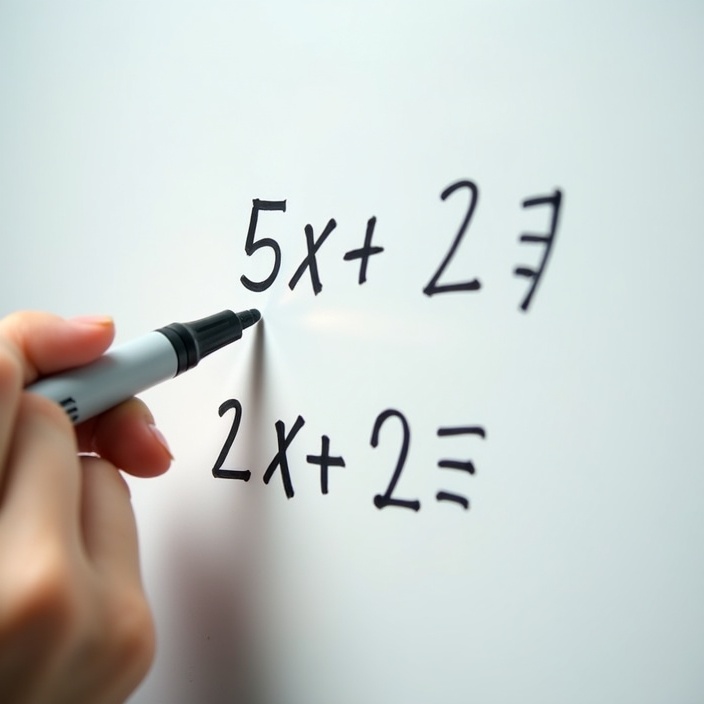 5x + 2
2x + 2 ≡